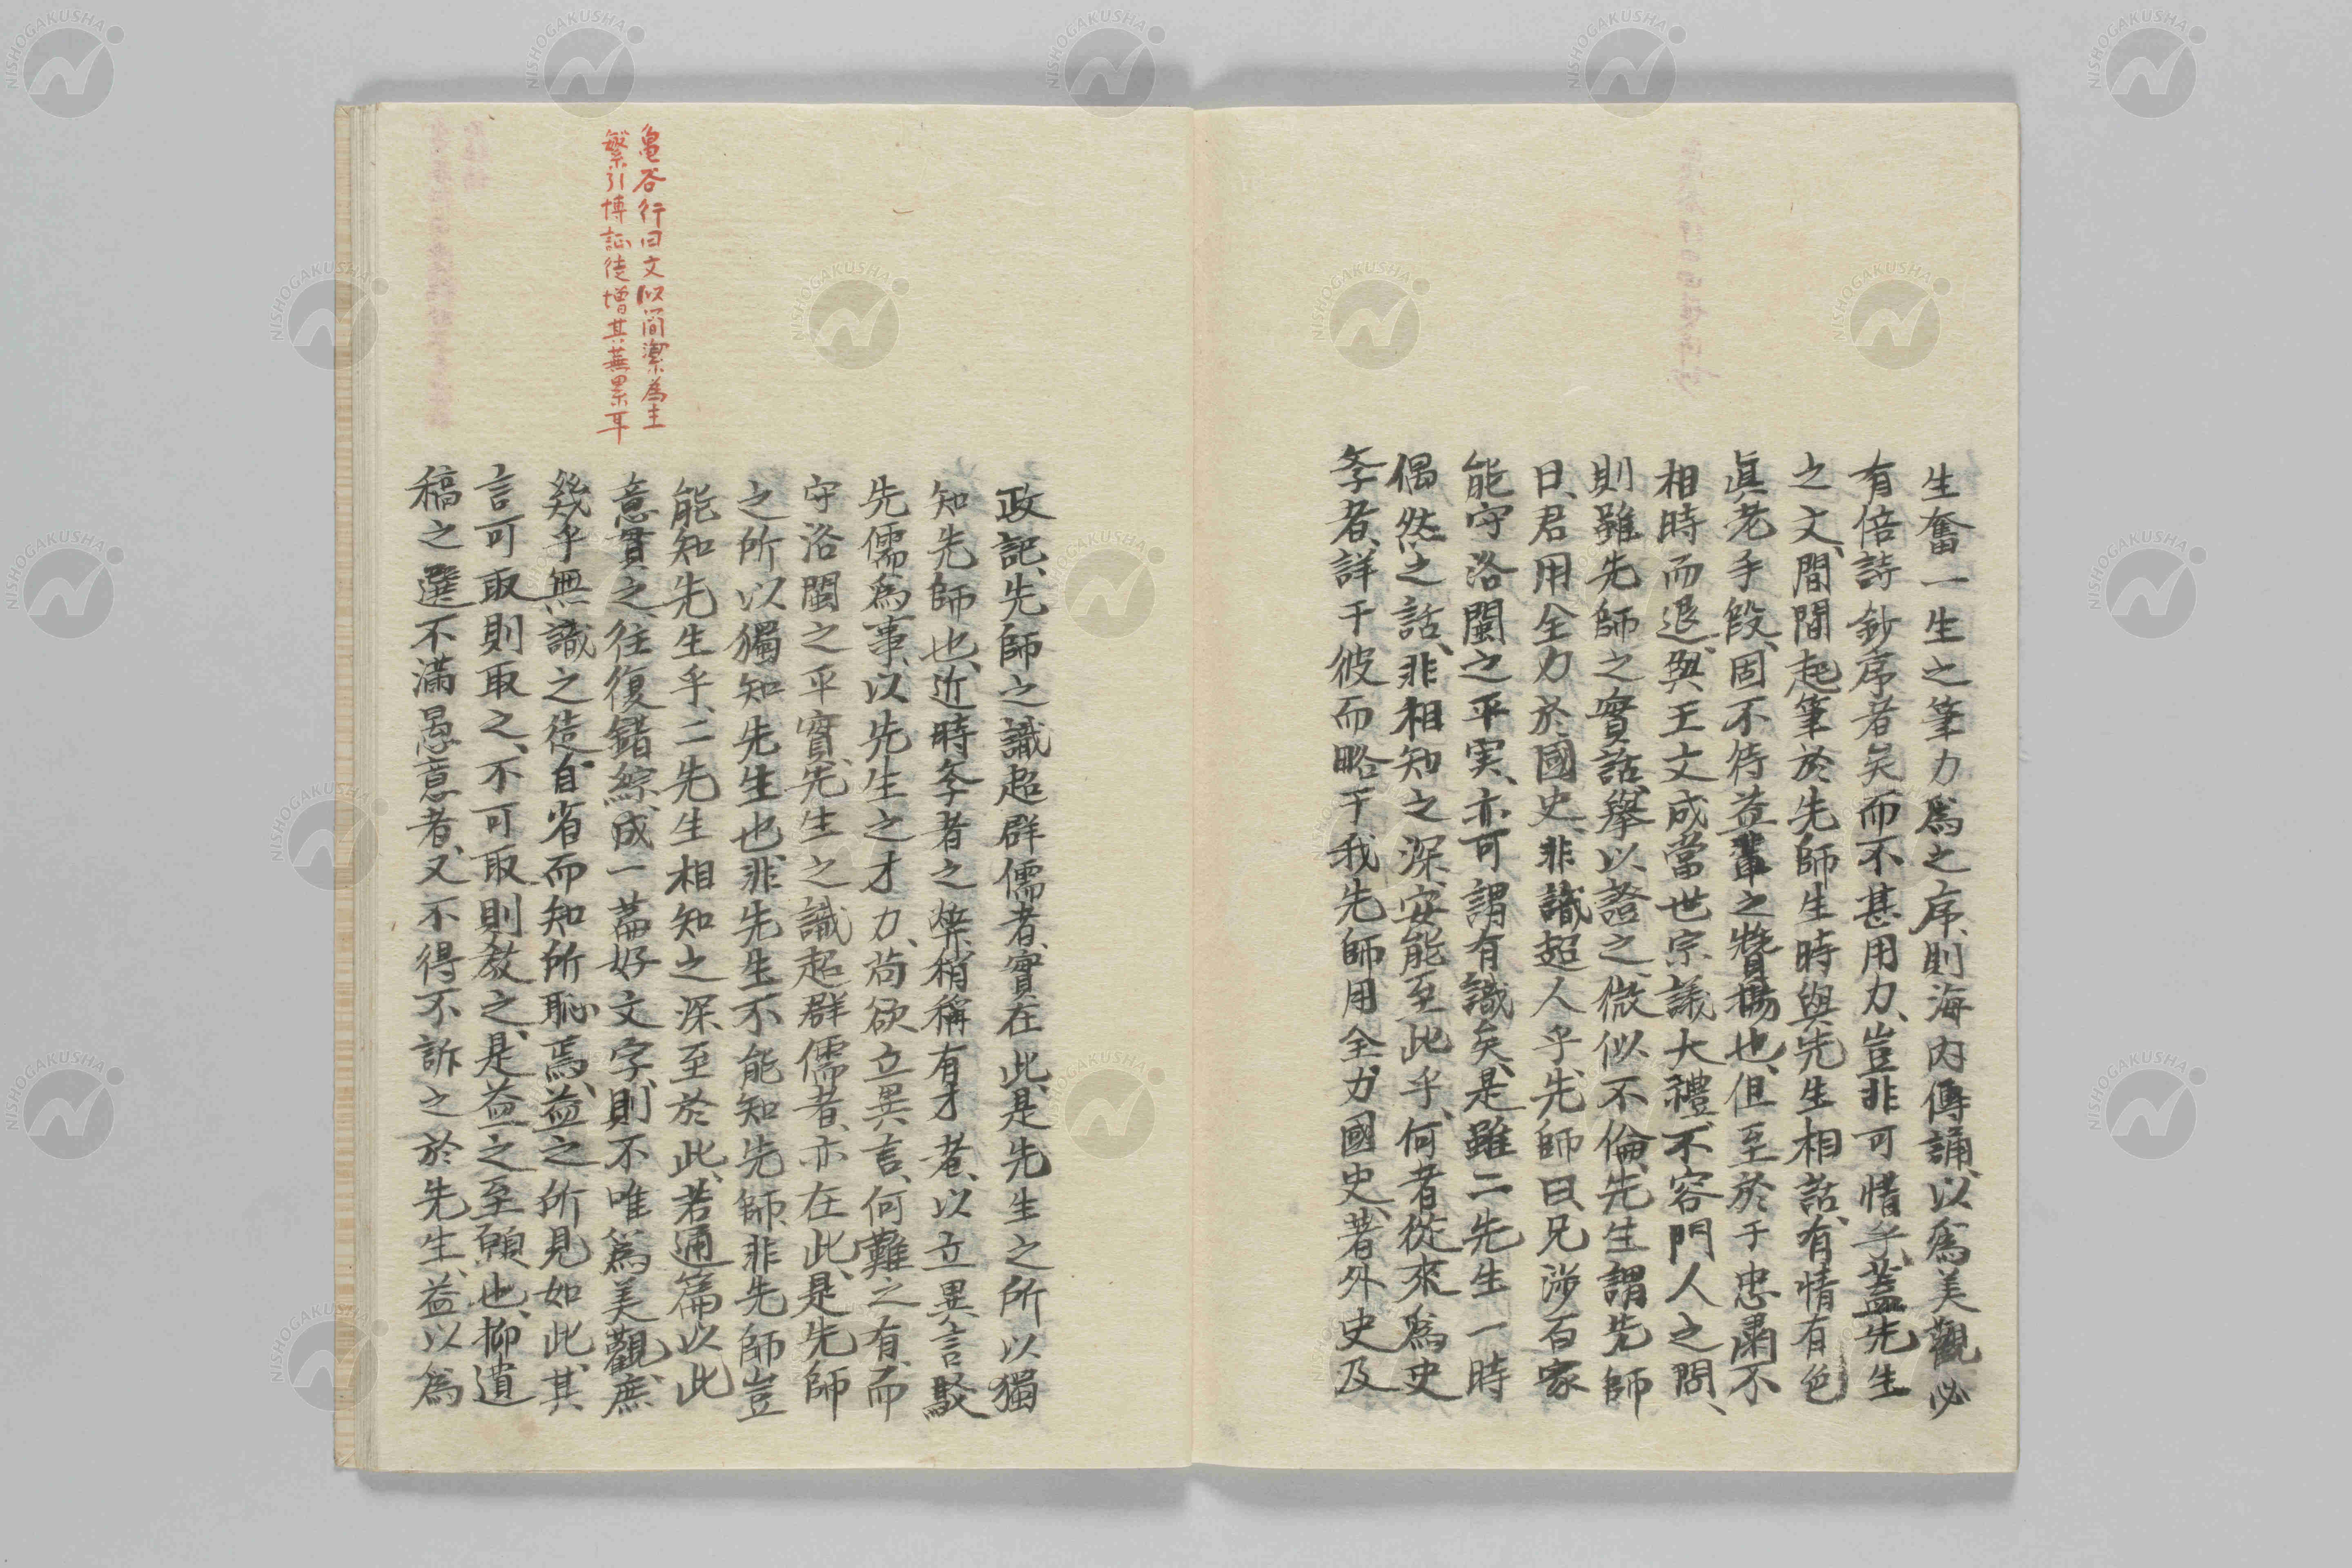 生奮一生之筆力爲之序、則海内傳誦、以爲美觀、必
有倍詩鈔序者矣、而不甚用力、豈非可惜乎、蓋先生
之文、間間起筆於先師生時與先生相話、有情有色
眞老手段、固不待益輩之賛揚也、但至於于忠肅不
相時而退、與王文成當世宗議大禮不容門人之問、
則雖先師之實話、擧以證之、微似不倫、先生謂先師
曰、君用全力於國史、非識超人乎、先師曰、兄渉百家
能守洛閩之平実、亦可謂有識矣、是雖二先生一時
偶然之話、非相知之深、安能至此乎、何者從來爲史
斈者、詳于彼而略于我、先師用全力國史、著外史及
政記、先師之識超群儒者、實在此、是先生之所以獨
知先師也、近時斈者之弊、稍稱有才者、以立異言駁
先儒爲事、以先生之才力、尚欲立異言、何難之有、而
守洛閩之平實、先生之識超群儒者、亦在此、是先師
之所以獨知先生也、非先生不能知先師、非先師豈
能知先生乎、二先生相知之深至於此、若通篇以此
意貫之、往復錯綜、成一篇好文字、則不唯爲美觀、庶
幾乎無識之徒、自省而知所恥焉、益之所見如此、其
言可取則取之、不可取則敎之、是益之至願也、抑遺
稿之選不滿愚意者、又不得不訴之於先生、益以爲
亀谷行曰文似简潔為主
繁引博証徒増其蕪累耳